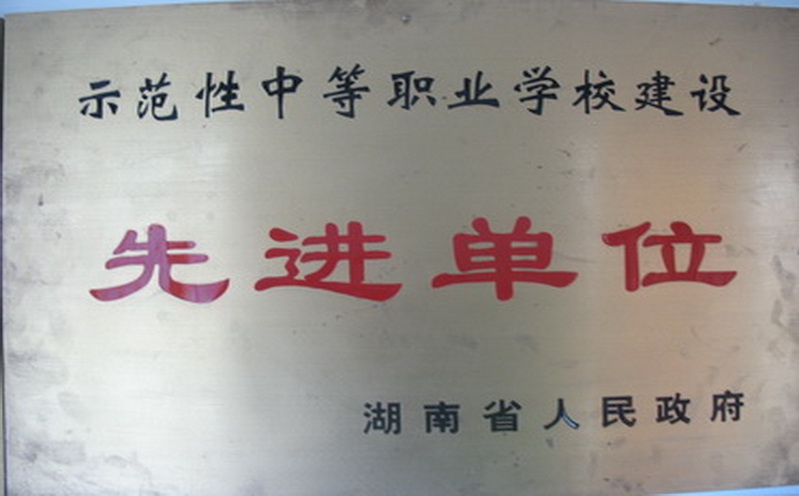 示范性中等职业学校建设
先进单位
湖南省人民政府